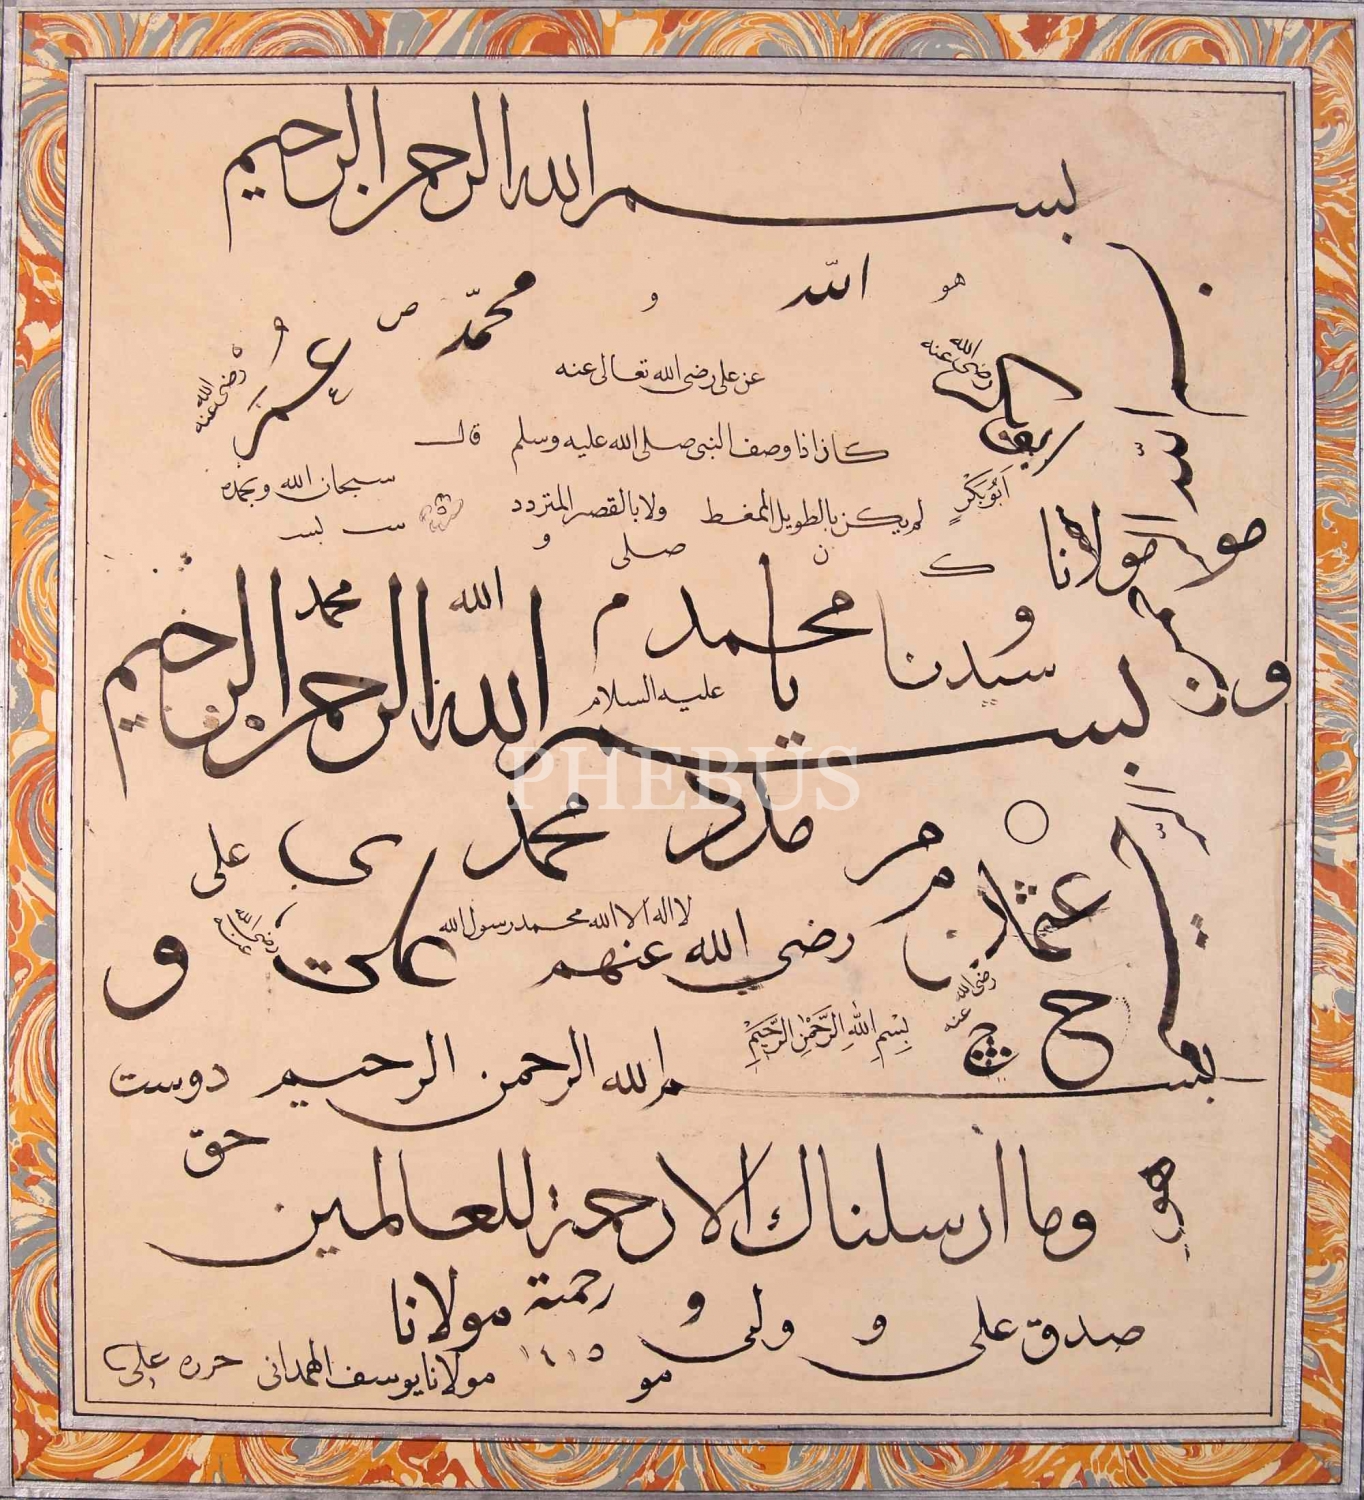 بسم الله الرحمن الرحيم
هو الله و محمّد ص
و عُمَر رضی الله عنه
رضی الله عنه
عن علی رضی الله تعالی عنه
كان اذا وصف النبی صلی الله علیه وسلم قال
سبحان الله وبحمده
اَبُوبَكْرٍ
لم یکن بالطویل الممغط ولا بالقصیر المتردد
الله
مولانا
صلی و
ن ك
الله محمد
و سیدنا محمد م
یا
علیه السلام
و
بسم الله الرحمن الرحيم
PHEBUS
مدد محمد ی علی
م م
عثمان رضی الله عنه
لا اله الا الله محمد رسول الله
رضي الله عنهم
علی رضی الله عنه و
ح
بِسْمِ اللهِ الرَّحْمٰنِ الرَّحِيْمِ
بسم الله الرحمن الرحيم دوست
حق
هو
وما ارسلناك الا رحمة للعالمين
صدق علی و ولی و رحمة مولانا
مو ١٤١٥ مولانا یوسف الهمدانی حرره علی